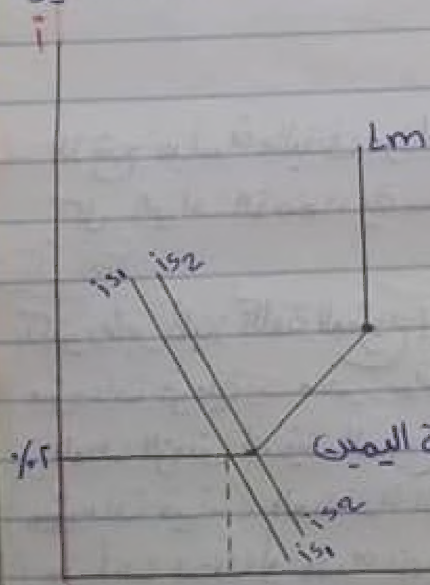 i
Lm
is1 is2
%2 اليمين
is2
is1